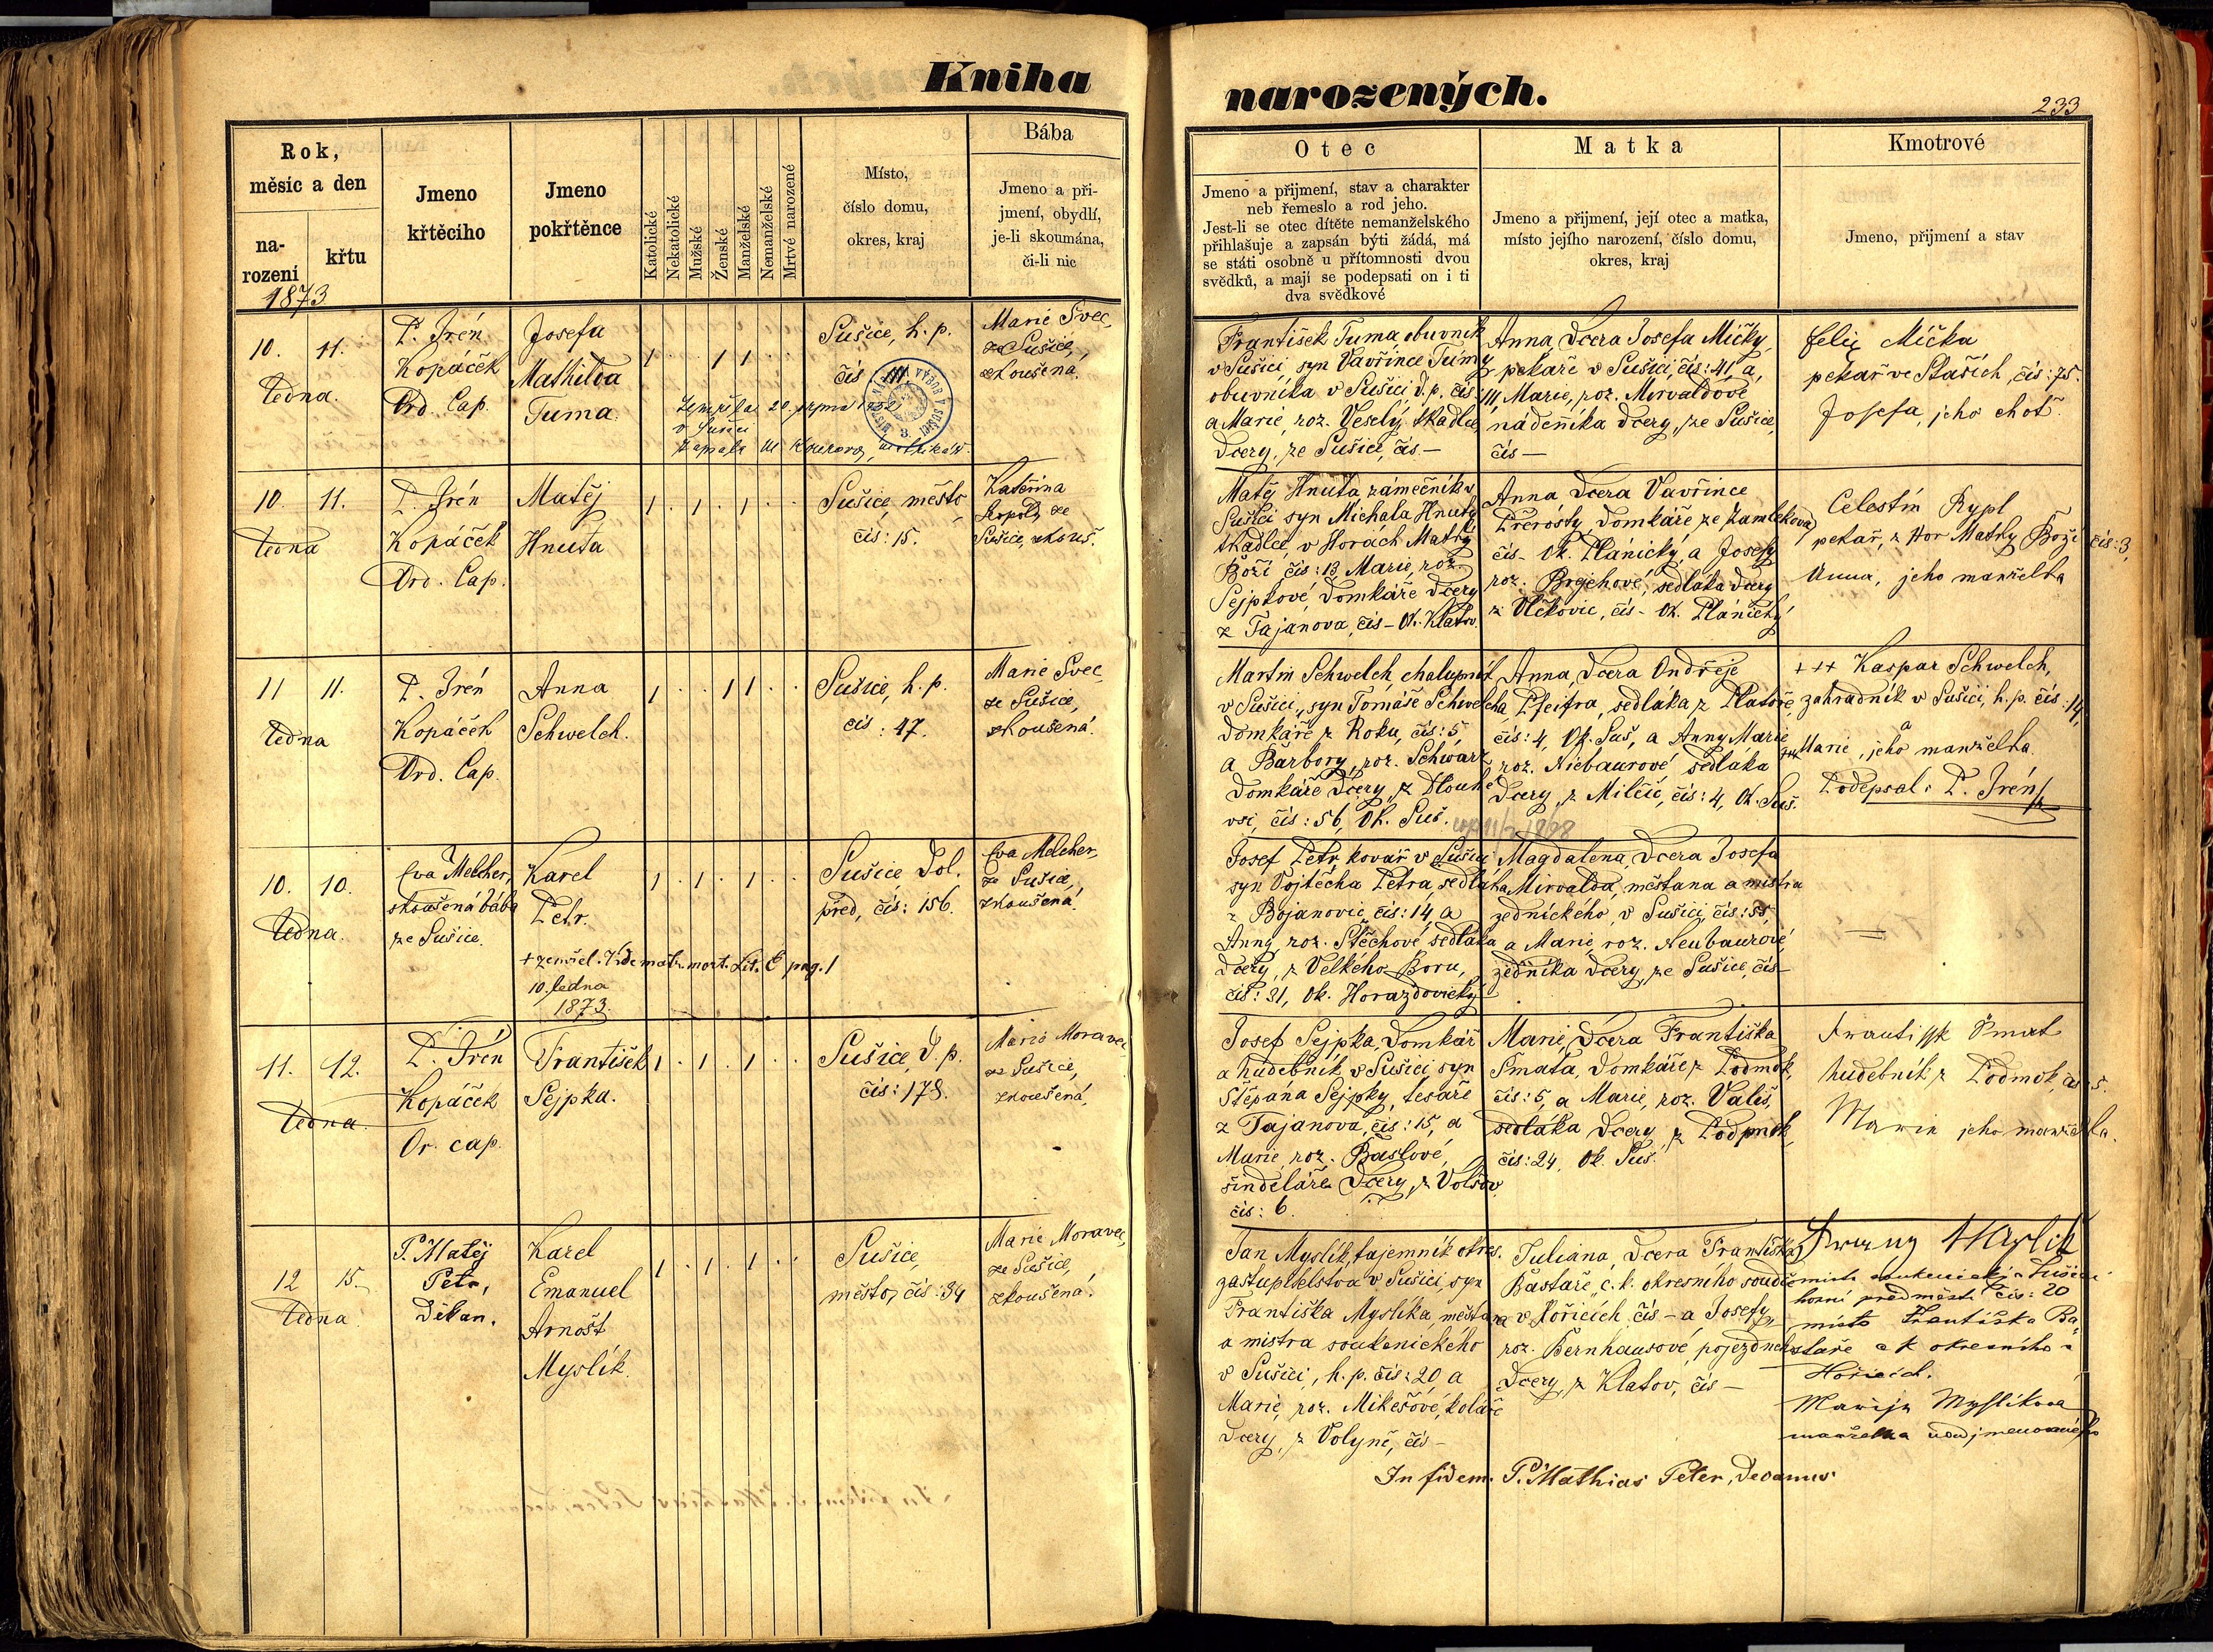 Kniha
narozených.
233
Rok,
měsíc a den
na-
rození
křtu
Jmeno
křtěcího
Jmeno
pokřtěnce
Katolické
Nekatolické
Mužské
Ženské
Manželské
Nemanželské
Mrtvé narozené
Místo,
číslo domu,
okres, kraj
Bába
Jmeno a při-
jmení, obydlí,
je-li skoumána,
či-li nic
Otec
Jmeno a přijmení, stav a charakter
neb řemeslo a rod jeho.
Jest-li se otec dítěte nemanželského
přihlašuje a zapsán býti žádá, má
se státi osobně u přítomnosti dvou
svědků, a mají se podepsati on i ti
dva svědkové
Matka
Jmeno a přijmení, její otec a matka,
místo jejího narození, číslo domu,
okres, kraj
Kmotrové
Jmeno, přijmení a stav
1873
10. 11.
ledna.
P. Irén
Kopáček
Ord. Cap.
Josefa
Mathilda
Tuma.
1 . . 1 1 . .
Sušice, h. p.
čís
Marie Švec,
ze Sušice,
zkoušená.
v Sušici
František Tuma, obuvník
v Sušici, syn Vavřince Tůmy
obuvníka v Sušici, d. p. čís:
a Marie, roz. Veselý, tkadlce
dcery, ze Sušice, čís. —
Anna, dcera Josefa Mičky,
pekaře v Sušici, čís: 41, a
Marie, roz. Mirvaldové
nádeníka dcery, ze Sušice,
čís —
Felix Mička
pekař ve Stařích, čís: 75.
Josefa, jeho choť.
10. 11.
ledna
P. Irén
Kopáček
Ord. Cap.
Matěj
Hnuta
1 . 1 . 1 . .
Sušice, město,
čís: 15.
Kateřina
ze
Sušice, zkouš.
Matěj Hnuta, zámečník v
Sušici syn Michala Hnuty
tkadlce, v Horách Matky
Boží čís: 13 Marie, roz.
Sejpkové, domkáře dcery
z Tajanova, čís – Ok. Klatov.
Anna dcera Vavřince
domkáře ze Zamlekova,
čís – Ok. Plánický, a Josefy
roz. sedláka dcery
z Vlčkovic, čís – Ok. Plánický
Celestín Rypl
pekař, z Hor Matky Boží čís: 3,
Anna, jeho manželka
11 11.
ledna
P. Irén
Kopáček
Ord. Cap.
Anna
Schwelch.
1 . . 1 1 . .
Sušice, h. p.
čís: 47.
Marie Švec,
ze Sušice,
zkoušená.
Martin Schwelch, chalupník
v Sušici, syn Tomáše Schwelcha,
domkáře z Roku, čís: 5,
a Barbory, roz. Schwarz
domkáře dcery, z Dlouhé
vsi, čís: 56, Ok. Suš.
Anna, dcera Ondřeje
Pfeifra, sedláka z Platoře,
čís: 4, Ok. Suš, a Anny Marie
roz. Niebaurové sedláka
dcery, z Milčic, čís: 4, Ok. Suš.
+++ Kaspar Schwelch,
zahradník v Sušici, h. p. čís: 14,
a
+++ Marie, jeho manželka.
Podepsal: P. Irén
10. 10.
ledna.
Eva Melcher,
zkoušená bába
ze Sušice.
Karel
Petr.
1 . 1 . 1 . .
Sušice Dol.
před, čís: 156.
Eva Melcher,
ze Sušice,
zkoušená.
+ zemřel. Vide matr. mort. Lit. C pag. 1
10. ledna
1873.
Josef Petr, kovář v Sušici
syn Vojtěcha Petra, sedláka
z Bojanovic, čís: 14, a
Anny, roz. Stěchové sedláka
dcery, z Velkého Boru,
čís: 31, Ok. Horažďovický
Magdalena, dcera Josefa
Mirvalda, měšťana a mistra
zednického, v Sušici, čís: 55,
a Marie, roz. Neubaurové,
zedníka dcery, ze Sušice, čís –
—
11. 12.
ledna.
P. Irén
Kopáček
Or. cap.
František
Sejpka.
1 . 1 . 1 . .
Sušice, d. p.
čís: 178.
Marie Moravec,
ze Sušice,
zkoušená,
Josef Sejpka, domkář
a hudebník v Sušici, syn
Štěpána Sejpky, tesaře
z Tajanova, čís: 15, a
Marie, roz. Bašlové,
šindeláře dcery, z Volšov
čís: 6.
Marie, dcera Františka
Šmata, domkáře z Podmok,
čís: 5, a Marie, roz. Vališ,
sedláka dcery, z Podmok,
čís: 24, Ok. Suš.
Šmat
hudebník z Podmok, čís. 5.
Marie jeho manželka.
12 15.
ledna.
P. Matěj
Petr,
děkan.
Karel
Emanuel
Arnošt
Myslík.
1 . 1 . 1 . .
Sušice,
město, čís: 34
Marie Moravec,
ze Sušice,
zkoušená.
Jan Myslík, tajemník okres.
zastupitelstva v Sušici, syn
Františka Myslíka, měšťana
a mistra soukenického
v Sušici, h. p. čís: 20, a
Marie, roz. Mikešové, koláře
dcery, z Volyně, čís –
Juliana, dcera Františka
Bastaře, c. k. okresního soudce
v Hořicích, čís – a Josefy,
roz. Bernhausové,
dcery, z Klatov, čís –
Myslík
horní předměstí čís: 20
místo Františka Ba-
staře c k okresního
Hořicích.
Marije Myslíková
manželka
In fidem. P. Mathias Peter, Decanus